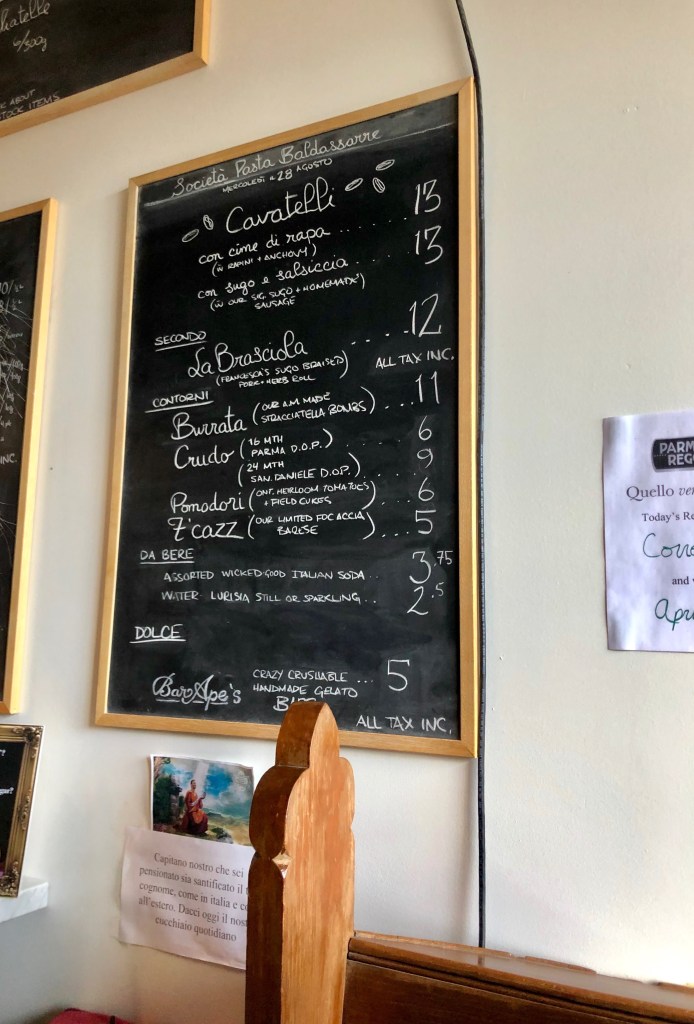 6/300g
ABOUT
STOCK ITEMS
Società Pasta Baldassarre
MERCOLEDÌ IL 28 AGOSTO
Cavatelli
con cime di rapa ..... 13
(W RAPINI + ANCHOVY)
con sugo e salsiccia .... 13
(W OUR SIG. SUGO + HOMEMADE
SAUSAGE
SECONDO
La Brasciola .... 12
(FRANCESCA'S SUGO BRAISED
PORK + HERB ROLL
ALL TAX INC.
CONTORNI
Burrata (OUR A.M MADE
STRACCIATELLA BOMBS) ... 11
Crudo (16 MTH
PARMA D.O.P.) .... 6
(24 MTH
SAN. DANIELE D.O.P.) .... 9
Pomodori (ONT. HEIRLOOM TOMATOES
+ FIELD CUKES) ... 6
F'cazz (OUR LIMITED FOCACCIA
BARESE) ... 5
DA BERE
ASSORTED WICKED GOOD ITALIAN SODA .. 3.75
WATER- LURISIA STILL OR SPARKLING ... 2.5
DOLCE
Bar Ape's
CRAZY CRUSHABLE ... 5
HANDMADE GELATO
ALL TAX INC.
INC.
Quello
Today's
and
Capitano nostro che sei
pensionato sia santificato il
cognome, come in italia e
all'estero. Dacci oggi il
cucchiaio quotidiano